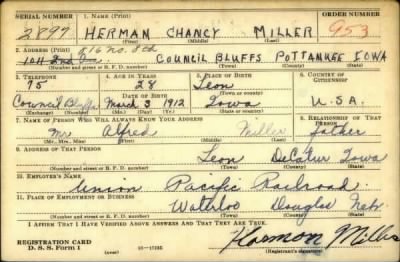 SERIAL NUMBER 1. NAME (Print) ORDER NUMBER
2897 HERMAN CHANCY MILLER 953
(First) (Middle) (Last)
2. ADDRESS (Print) 816 no. 8th
1011 2nd COUNCIL BLUFFS POTTAWKEE IOWA
(Number and street or R. F. D. number) (Town) (County) (State)
3. TELEPHONE 4. AGE IN YEARS 5. PLACE OF BIRTH 6. COUNTRY OF CITIZENSHIP
75 28 Leon
DATE OF BIRTH (Town or county)
Council Bluffs March 3 1912 Iowa U.S.A.
(Exchange) (Number) (Mo.) (Day) (Yr.) (State or country)
7. NAME OF PERSON WHO WILL ALWAYS KNOW YOUR ADDRESS 8. RELATIONSHIP OF THAT PERSON
Mr Alfred Miller father
(Mr., Mrs., Miss) (First) (Middle) (Last)
9. ADDRESS OF THAT PERSON
Leon Decatur Iowa
(Number and street or R. F. D. number) (Town) (County) (State)
10. EMPLOYER'S NAME
Union Pacific Railroad
11. PLACE OF EMPLOYMENT OR BUSINESS
Waterloo Douglas Nebr.
(Number and street or R. F. D. number) (Town) (County) (State)
I AFFIRM THAT I HAVE VERIFIED ABOVE ANSWERS AND THAT THEY ARE TRUE.
REGISTRATION CARD
D. S. S. Form 1 (over) 16-17105 Harmon Miller
(Registrant's signature)